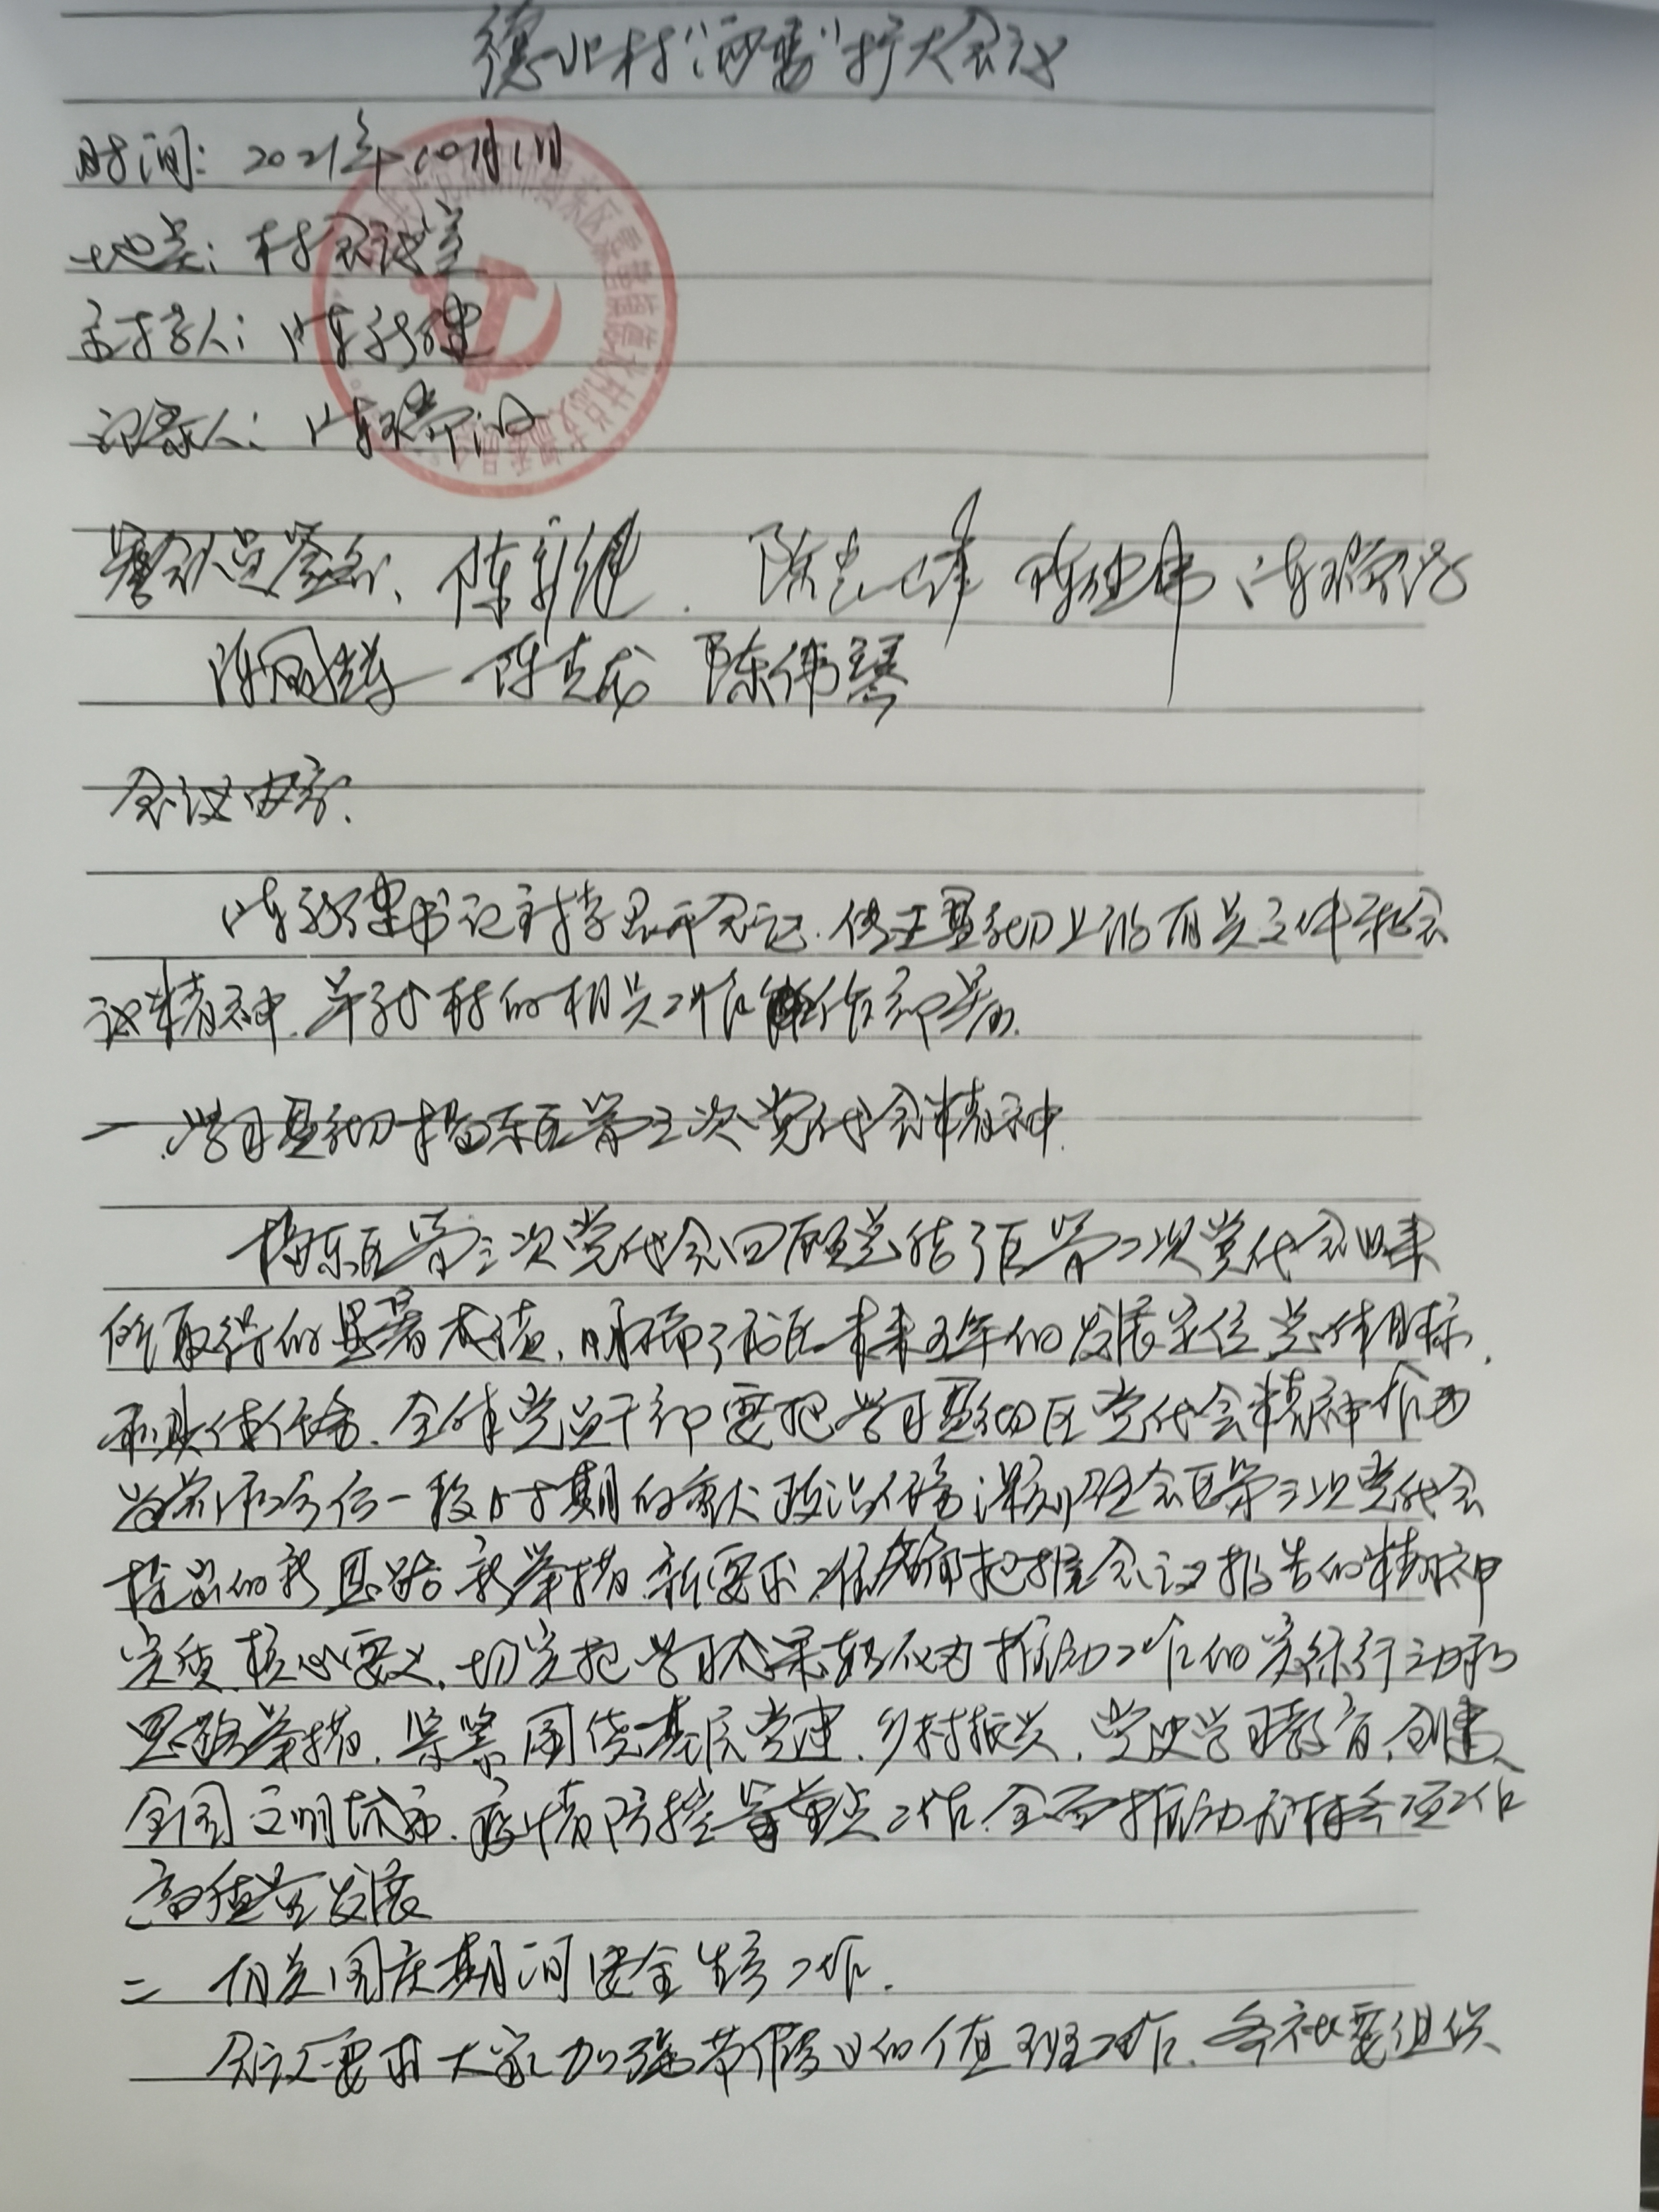 德北村“两委”扩大会议
时间：2021年10月1日
地点：村会议室
主持人：陈新建
记录人：陈
参会人员签名、陈新建 陈 陈 陈
陈 陈 陈伟琴
会议内容.
陈新建书记主持召开会议.传达贯彻上的有关文件和会
议精神.并对村的相关工作作部署.
一.学习贯彻揭东区第三次党代会精神.
揭东区第三次党代会回顾总结了区第二次党代会以来
所取得的显著成绩.明确了我区未来五年的发展定位.总体目标.
和具体任务.全体党员干部要把学习贯彻区党代会精神作为
当前和今后一段时期的重大政治任务.深刻领会区第三次党代会
提出的新思路.新举措.新要求.准确把握会议报告的精神
实质.核心要义.切实把学习成果转化为推动工作的实际行动和
思路举措.紧紧围绕基层党建.乡村振兴.党史学习教育.创建
全国文明城市.疫情防控等重点工作.全面推动我村各项工作
高质量发展
二 有关国庆期间安全生产工作.
会议要求大家加强节假日的值班工作.各社要组织